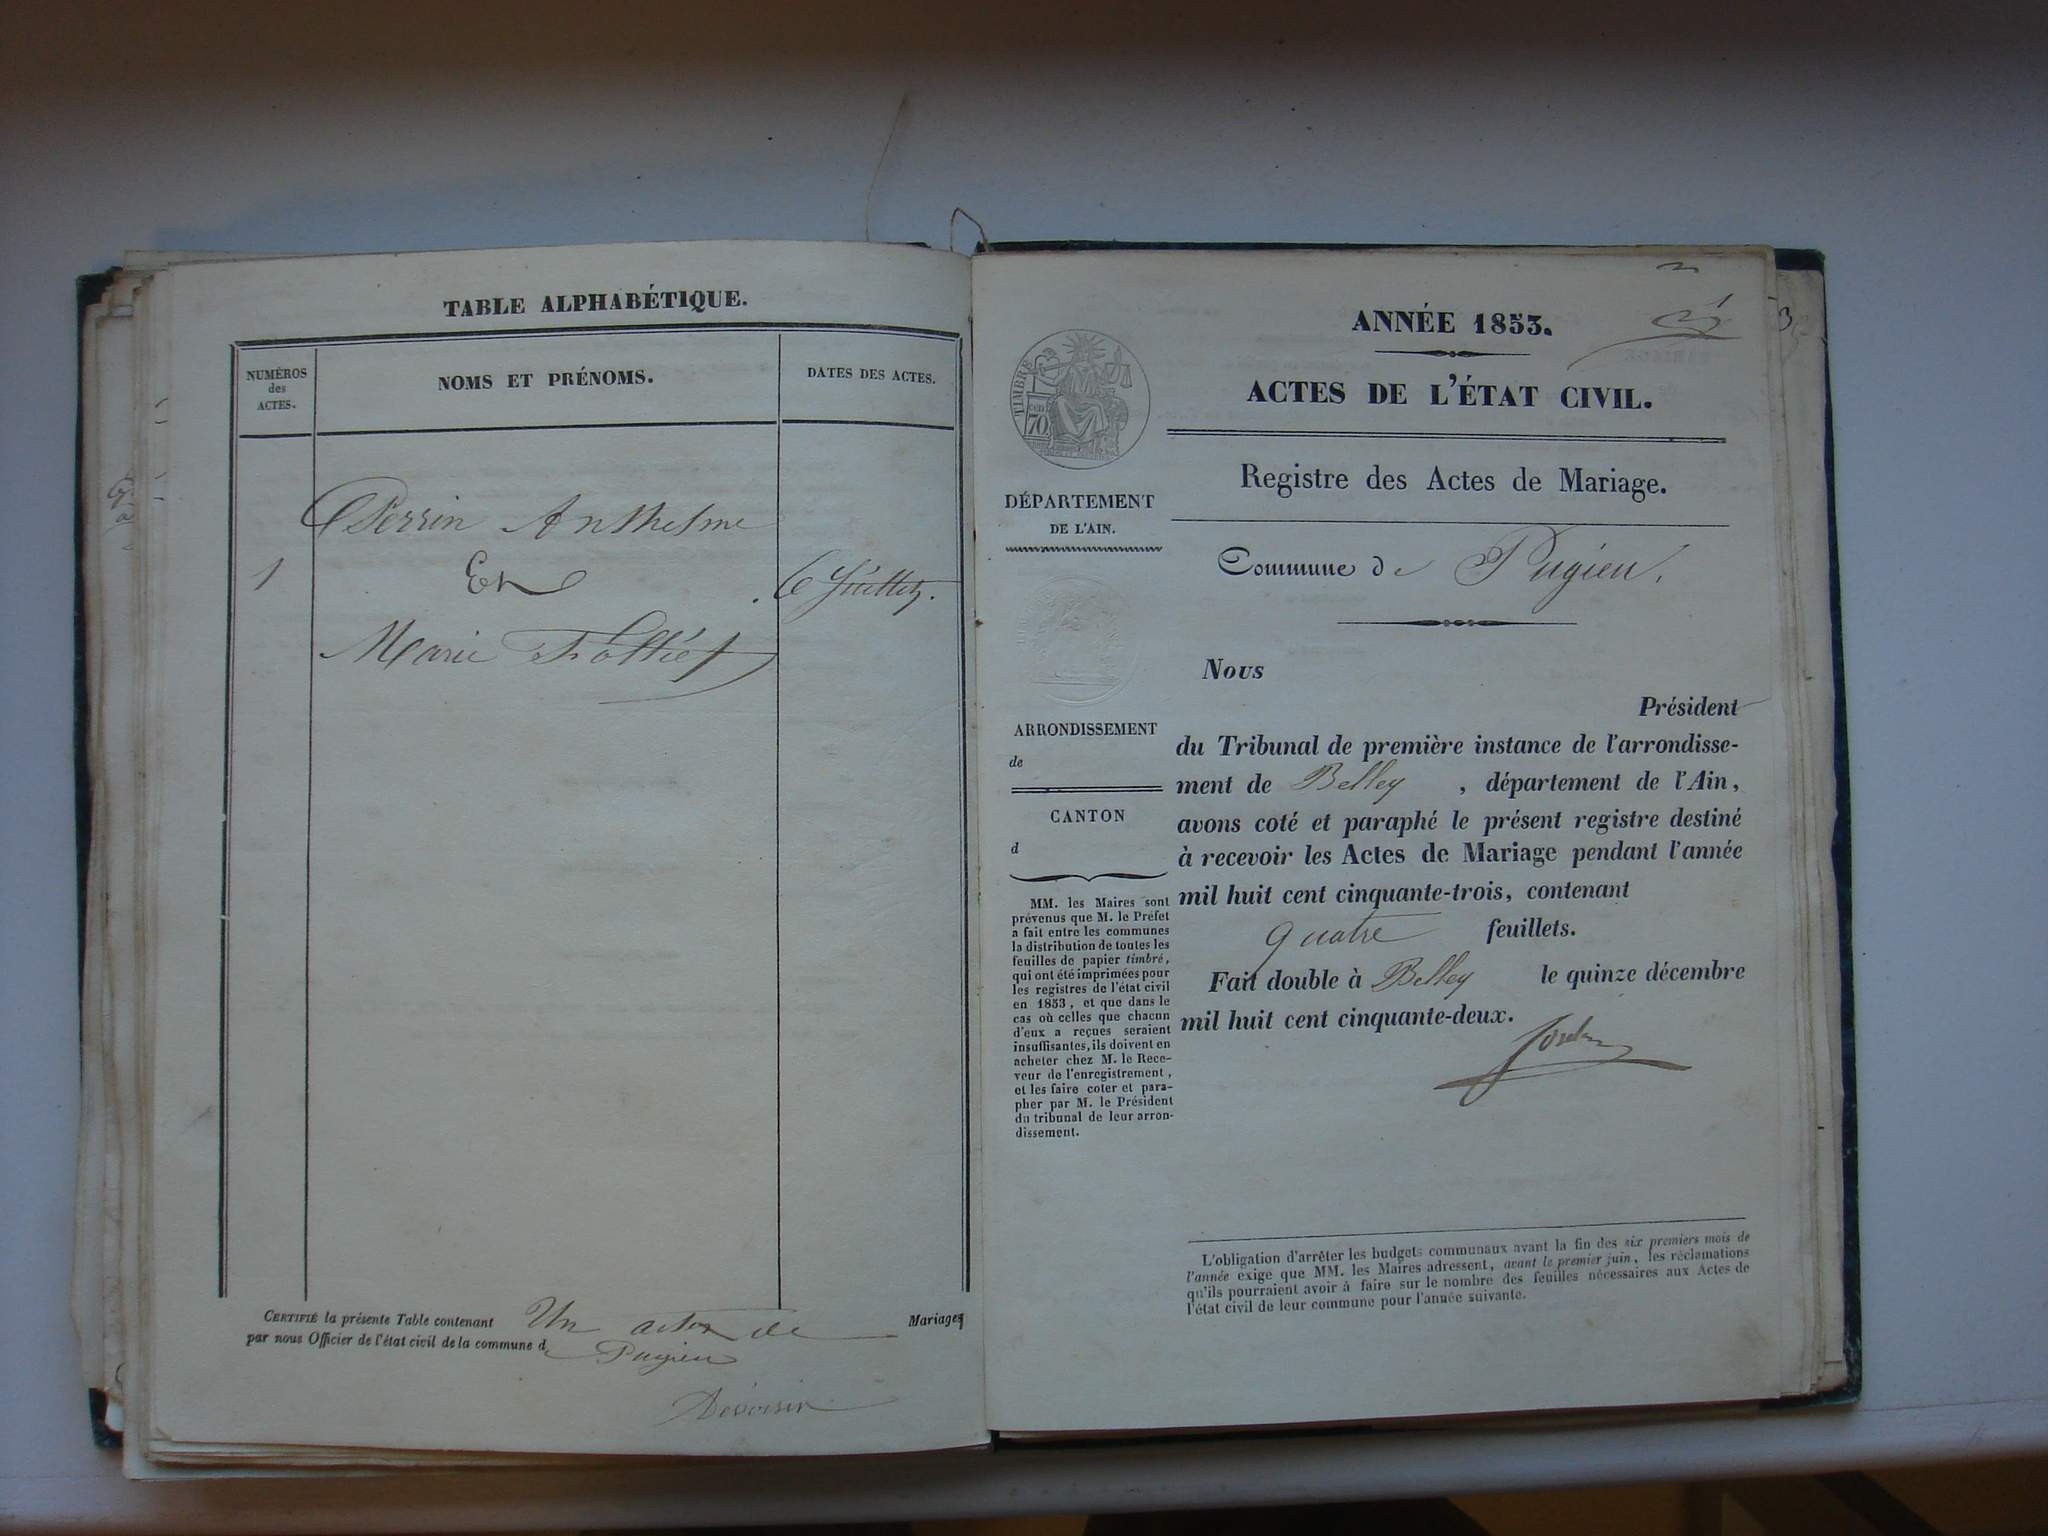 TABLE ALPHABÉTIQUE.
NUMÉROS
des
ACTES.
NOMS ET PRÉNOMS.
DATES DES ACTES.
Perrin Anthelme
1
Et
6 Juillet.
Marie
CERTIFIÉ la présente Table contenant Un acte de Mariages
par nous Officier de l'état civil de la commune de Pugieu
3
ANNÉE 1853.
ACTES DE L'ÉTAT CIVIL.
Registre des Actes de Mariage.
Commune de Pugieu.
TIMBRE
70
DÉPARTEMENT
DE L'AIN.
ARRONDISSEMENT
de
CANTON
d
MM. les Maires sont
prévenus que M. le Préfet
a fait entre les communes
la distribution de toutes les
feuilles de papier timbré,
qui ont été imprimées pour
les registres de l'état civil
en 1853, et que dans le
cas où celles que chacun
d'eux a reçues seraient
insuffisantes, ils doivent en
acheter chez M. le Rece-
veur de l'enregistrement,
et les faire coter et para-
pher par M. le Président
du tribunal de leur arron-
dissement.
Nous
Président
du Tribunal de première instance de l'arrondisse-
ment de Belley, département de l'Ain,
avons coté et paraphé le présent registre destiné
à recevoir les Actes de Mariage pendant l'année
mil huit cent cinquante-trois, contenant
quatre feuillets.
Fait double à Belley le quinze décembre
mil huit cent cinquante-deux.
L'obligation d'arrêter les budgets communaux avant la fin des six premiers mois de
l'année exige que MM. les Maires adressent, avant le premier juin, les réclamations
qu'ils pourraient avoir à faire sur le nombre des feuilles nécessaires aux Actes de
l'état civil de leur commune pour l'année suivante.